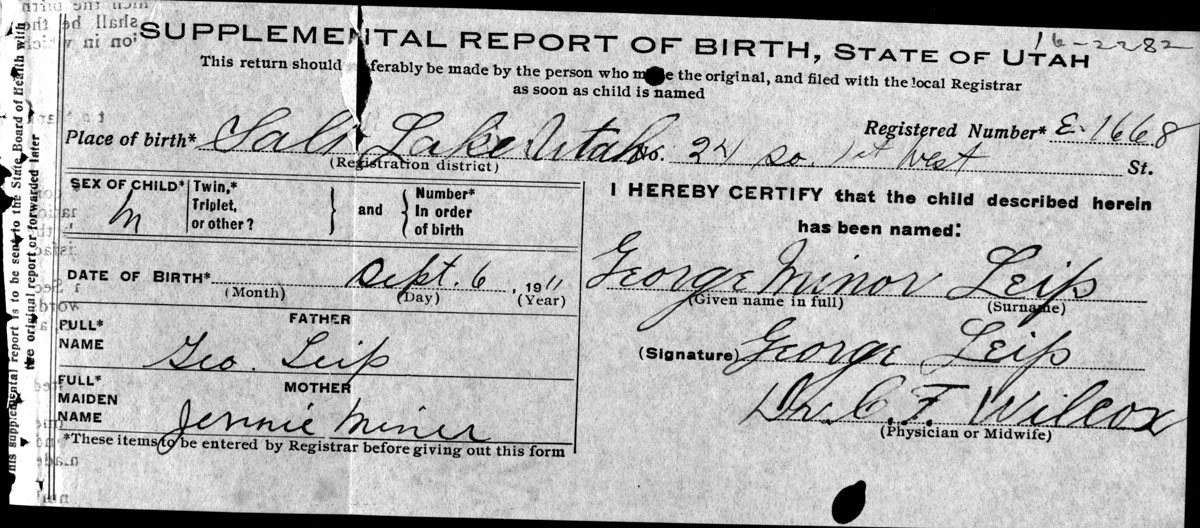 16-2282
SUPPLEMENTAL REPORT OF BIRTH, STATE OF UTAH
This return should preferably be made by the person who made the original, and filed with the local Registrar
as soon as child is named
Registered Number* E-1668
Place of birth* Salt Lake Utah No. 24 So. 1st West St.
(Registration district)
SEX OF CHILD* M
Twin,*
Triplet,
or other?
and
Number*
In order
of birth
DATE OF BIRTH* Sept. 6, 1911
(Month) (Day) (Year)
FATHER
FULL*
NAME
Geo. Leip
MOTHER
FULL*
MAIDEN
NAME
Jennie Miner
*These items to be entered by Registrar before giving out this form
I HEREBY CERTIFY that the child described herein
has been named:
George Minor Leip
(Given name in full) (Surname)
(Signature) George Leip
Dr. C. F. Wilcox
(Physician or Midwife)
This supplemental report is to be sent to the State Board of Health with
the original report or forwarded later